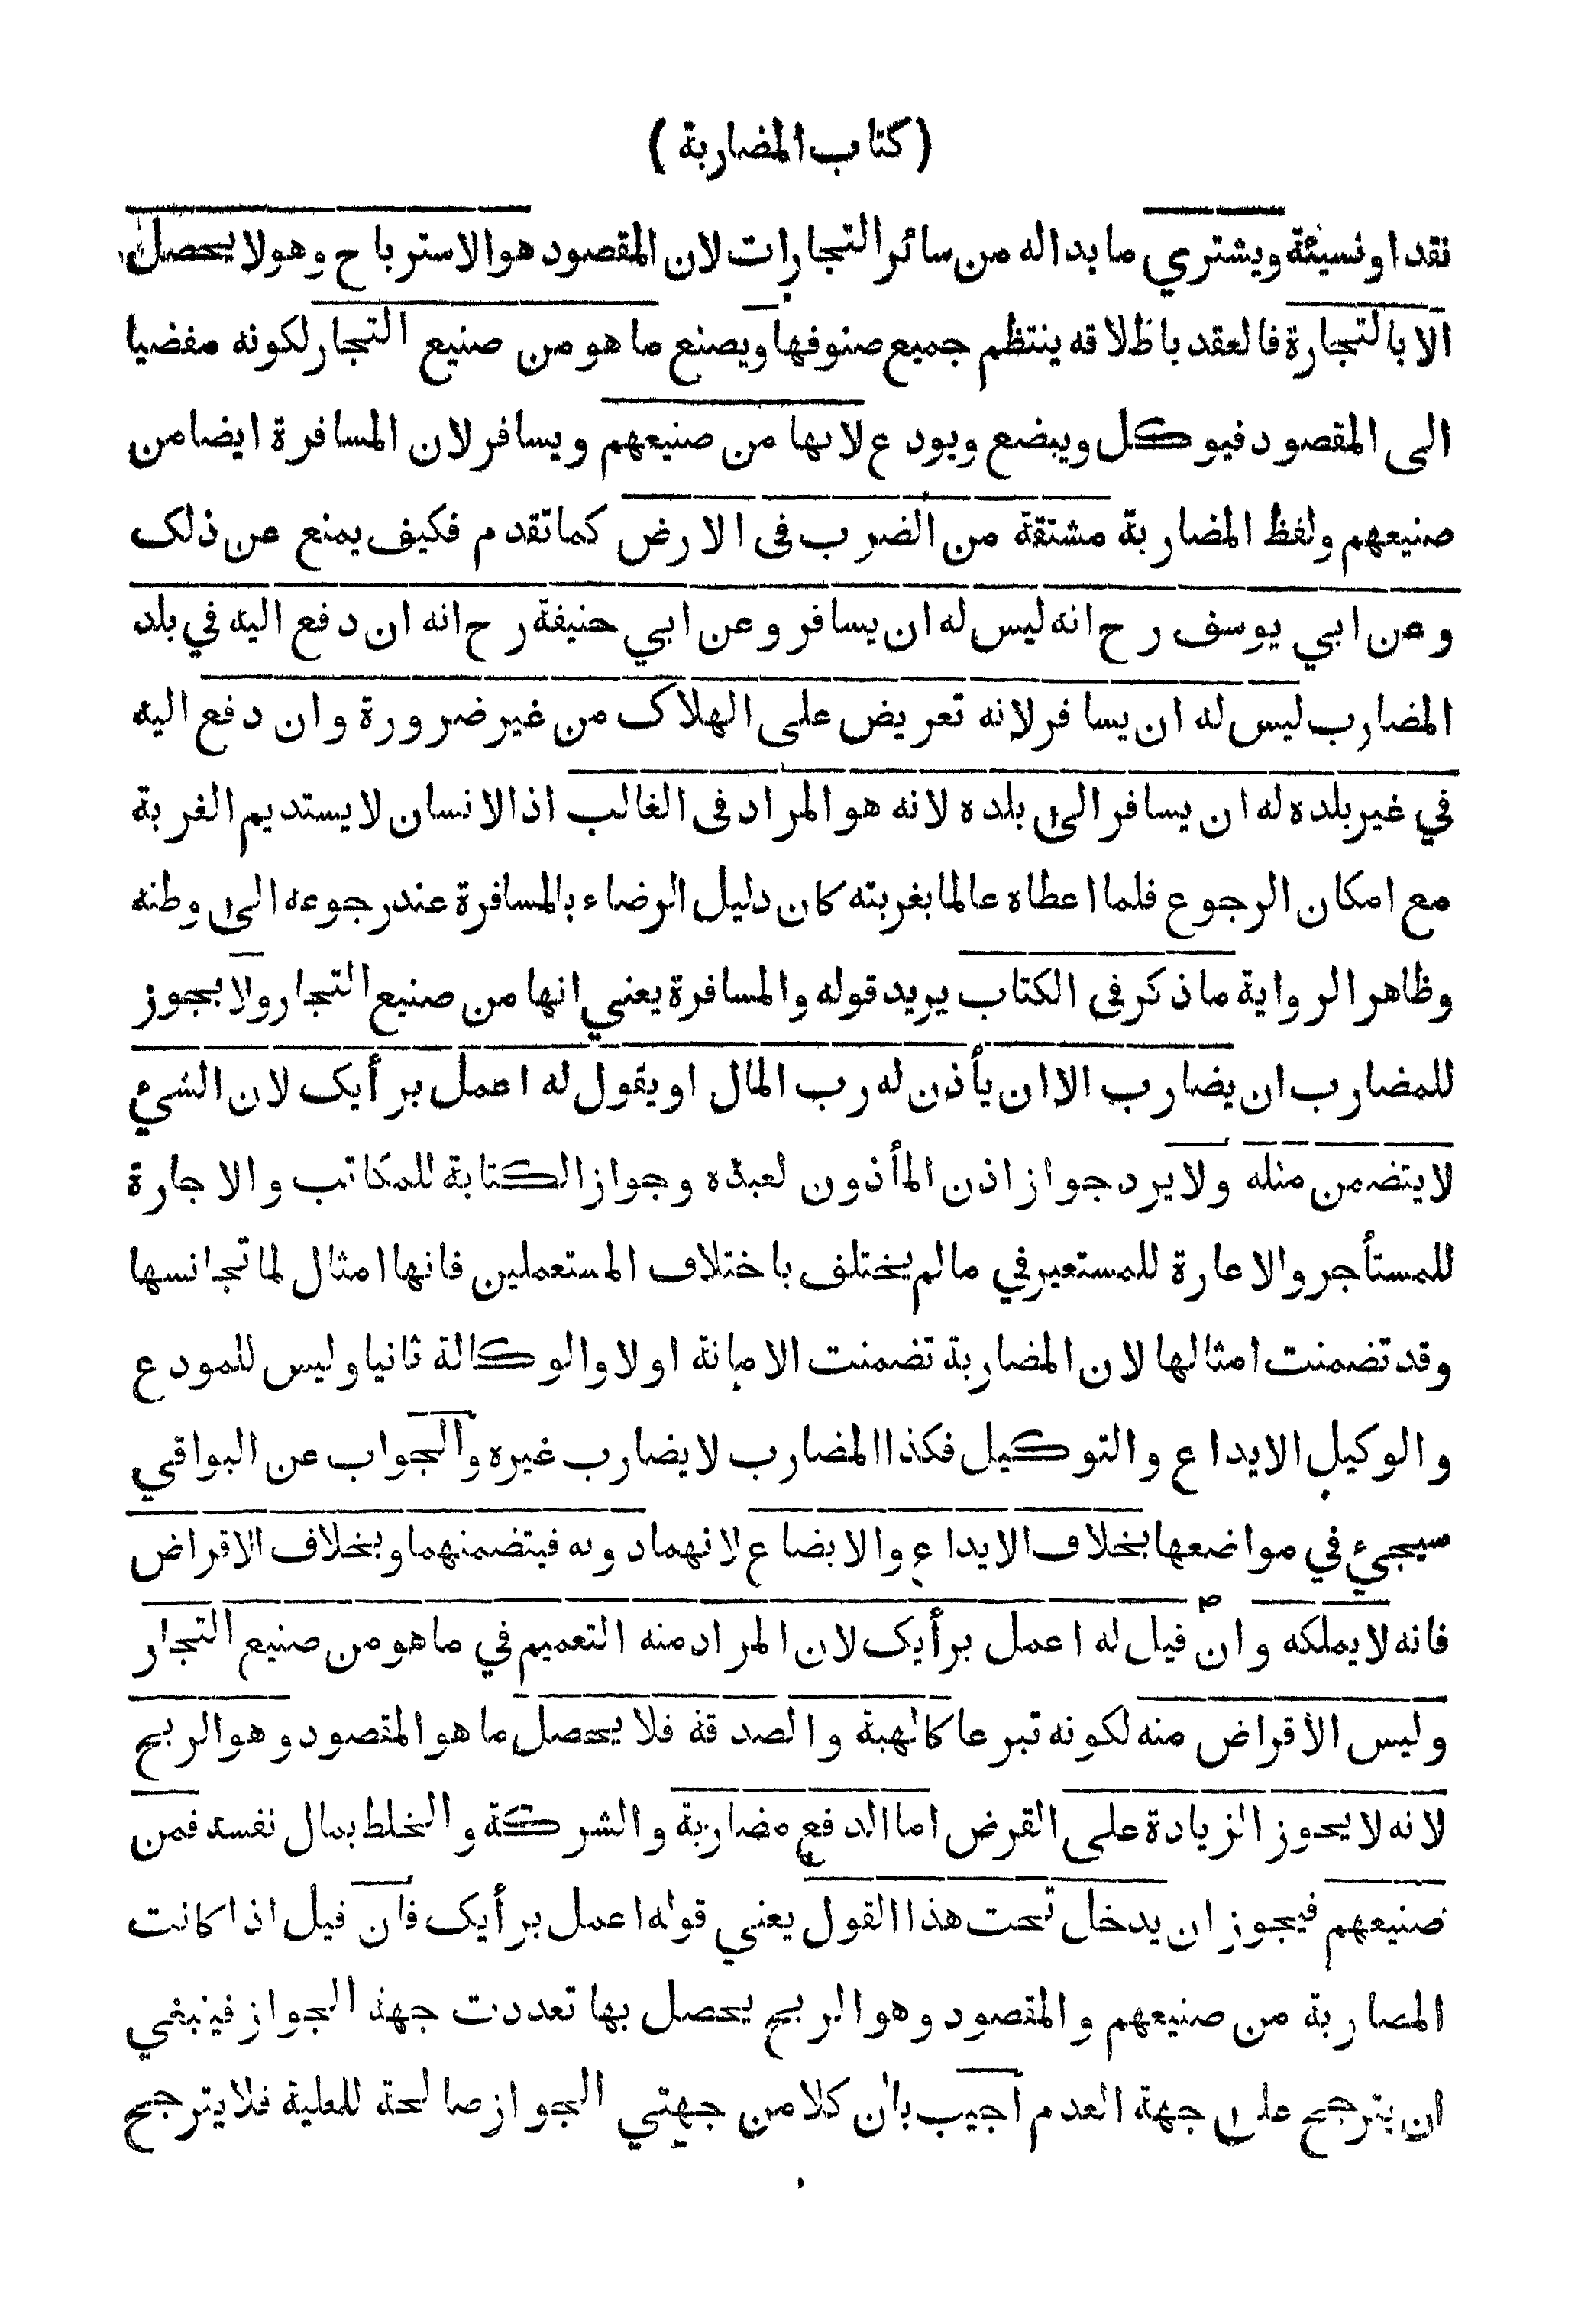 ( كتاب المضاربة )
نقدا ونسيئة ويشتري ما بدا له من سائر التجارات لان المقصود هو الاسترباح وهو لا يحصل
الا بالتجارة فالعقد باطلاقه ينتظم جميع صنوفها ويصنع ما هو من صنيع التجار لكونه مفضيا
الى المقصود فيوكل ويبضع ويودع لانها من صنيعهم ويسافر لان المسافرة ايضا من
صنيعهم ولفظ المضاربة مشتقة من الضرب فى الارض كما تقدم فكيف يمنع عن ذلك
وعن ابي يوسف رح انه ليس له ان يسافر وعن ابي حنيفة رح انه ان دفع اليه في بلد
المضارب ليس له ان يسافر لانه تعريض على الهلاك من غير ضرورة وان دفع اليه
في غير بلده له ان يسافر الى بلده لانه هو المراد فى الغالب اذ الانسان لا يستديم الغربة
مع امكان الرجوع فلما اعطاه عالما بغربته كان دليل الرضاء بالمسافرة عند رجوعه الى وطنه
وظاهر الرواية ما ذكر فى الكتاب يريد قوله والمسافرة يعني انها من صنيع التجار ولا يجوز
للمضارب ان يضارب الا ان يأذن له رب المال او يقول له اعمل برأيك لان الشيء
لا يتضمن مثله ولا يرد جواز اذن المأذون لعبده وجواز الكتابة للمكاتب والاجارة
للمستأجر والاعارة للمستعير في ما لم يختلف باختلاف المستعملين فانها امثال لما تجانسها
وقد تضمنت امثالها لان المضاربة تضمنت الامانة اولا والوكالة ثانيا وليس للمودع
والوكيل الايداع والتوكيل فكذا المضارب لا يضارب غيره والجواب عن البواقي
سيجيء في مواضعها بخلاف الايداع والابضاع لانهما دونه فيتضمنهما وبخلاف الاقراض
فانه لا يملكه وان قيل له اعمل برأيك لان المراد منه التعميم في ما هو من صنيع التجار
وليس الاقراض منه لكونه تبرعا كالهبة والصدقة فلا يحصل ما هو المقصود وهو الربح
لانه لا يجوز الزيادة على القرض اما الدفع مضاربة والشركة والخلط بمال نفسه فمن
صنيعهم فيجوز ان يدخل تحت هذا القول يعني قوله اعمل برأيك فان قيل اذا كانت
المضاربة من صنيعهم والمقصود وهو الربح يحصل بها تعددت جهة الجواز فينبغي
ان يترجح على جهة العدم اجيب بان كلا من جهتي الجواز صالحة للعلية فلا يترجح